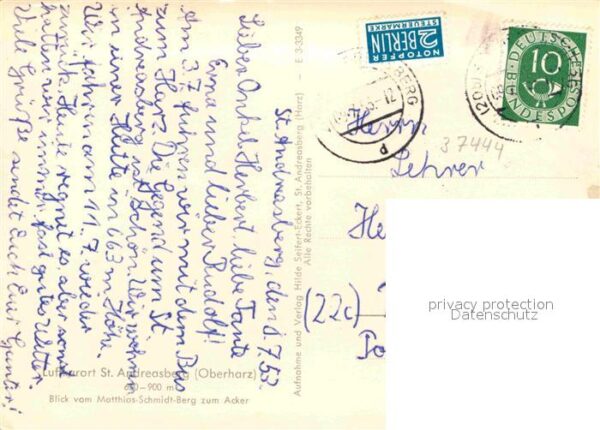 St. Andreasberg, den 8.7.53.
Lieber Onkel Herbert, liebe Tante
Erna und lieber Rudolf!
Am 3.7. fuhren wir mit dem Bus
zum Harz. Die Gegend um St.
Andreasberg ist schön. Wir wohnen
in einer Hütte in 663 m Höhe.
Wir fahren am 11.7. wieder
zurück. Heute regnet es, aber sonst
hatten wir immer fast gutes Wetter.
Viele Grüße sendet Dich Euer Günter!
Luftkurort St. Andreasberg (Oberharz)
600–900 m
Blick vom Matthias-Schmidt-Berg zum Acker
Aufnahme und Verlag Hilde Seifert-Eckert, St. Andreasberg (Harz) · E 3-3349
Alle Rechte vorbehalten
NOTOPFER
2 BERLIN
STEUERMARKE
10
DEUTSCHE
BUNDESPOST
BERG
-12
(20
Herrn
37444
Lehrer
He
(22c)
privacy protection
Datenschutz